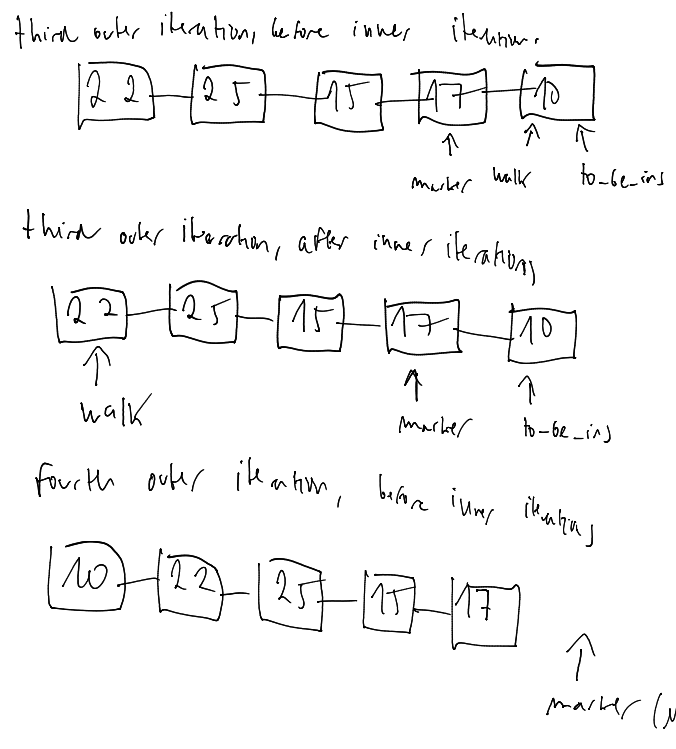 third outer iteration, before inner iteration.
22 25 15 17 10
marker walk to_be_ins
third outer iteration, after inner iteration,
22 25 15 17 10
walk marker to_be_ins
fourth outer iteration, before inner iteration,
10 22 25 15 17
marker (N